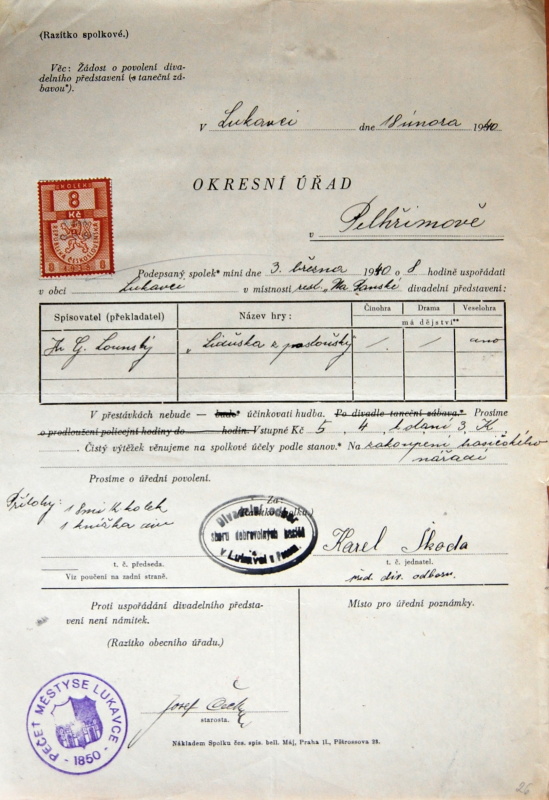 (Razítko spolkové.)
Věc: Žádost o povolení diva-
delního představení (s taneční zá-
bavou*).
V Lukavci dne 18 února 1940
OKRESNÍ ÚŘAD
v Pelhřimově
KOLEK
8
Kč
REPUBLIKA ČESKOSLOVENSKÁ
8 1938 8
Podepsaný spolek* míní dne 3. března 1940 o 8 hodině uspořádati
v obci Lukavci v místnosti rest. „Na Panské divadelní představení:
Spisovatel (překladatel) Název hry: Činohra Drama Veselohra
má dějství**
Fr G. Lounský „Liduška z pastoušky" /. /. ano
V přestávkách nebude — bude* účinkovati hudba. Po divadle taneční zábava.* Prosíme
o prodloužení policejní hodiny do hodin. Vstupné Kč 5, 4, k stání 3. K.
Čistý výtěžek věnujeme na spolkové účely podle stanov.* Na zakoupení hasičského
nářadí
Prosíme o úřední povolení.
Přílohy: 1 8mi K kolek
1 knížka
Za:
Divadelní odbor
sboru dobrovolných hasičů
v Lukavci u Pacova.
Karel Škoda
t. č. předseda. t. č. jednatel.
Viz poučení na zadní straně. řed. div. odboru.
Proti uspořádání divadelního předsta-
vení není námitek.
(Razítko obecního úřadu.)
Místo pro úřední poznámky.
Josef
starosta.
PEČEŤ MĚSTYSE LUKAVCE
- 1850 -
Nákladem Spolku čes. spis. bell. Máj, Praha II., Pštrossova 28.
26